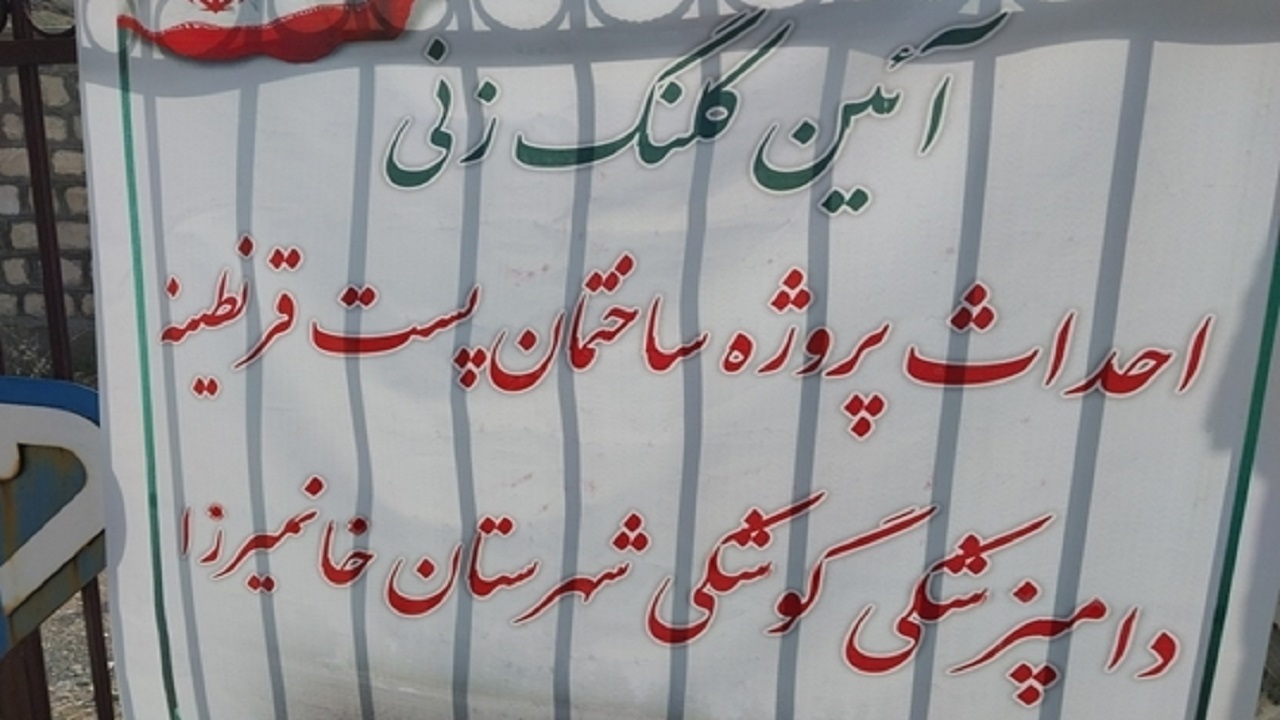 آئین کلنگ زنی
احداث پروژه ساختمان پست قرنطینه
دامپزشکی گوشکی شهرستان خانمیرزا